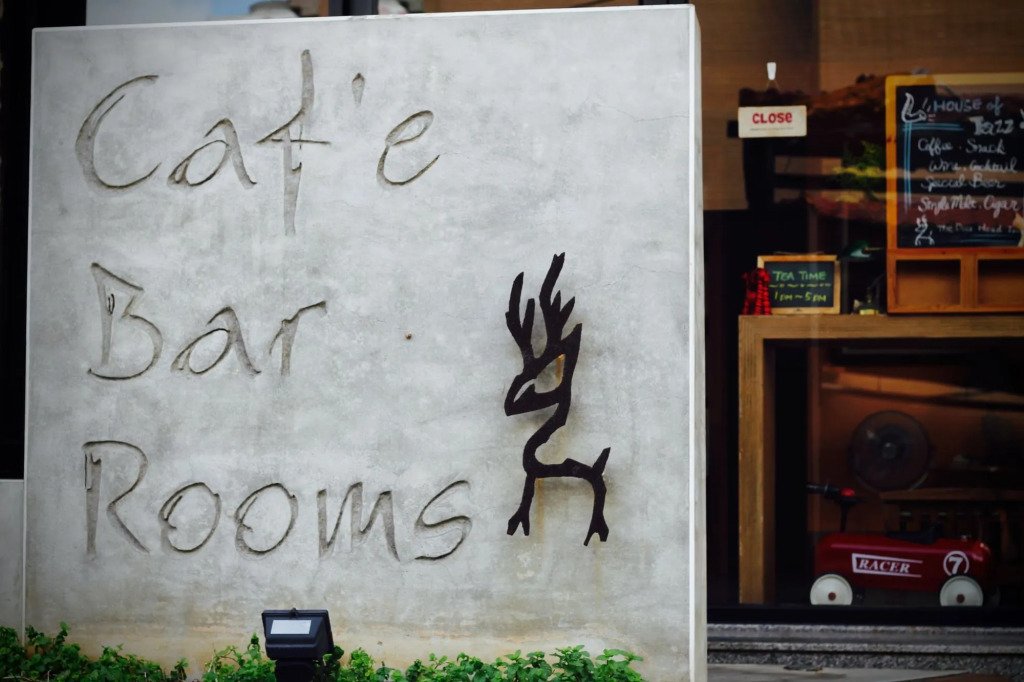 Caf'e
Bar
Rooms
CLOSE
HOUSE of
Jazz
Coffee. Snack
Wine. Cocktail
Special Beer
Single Malt. Cigar
The Deer Head
TEA TIME
1PM~5PM
RACER
7